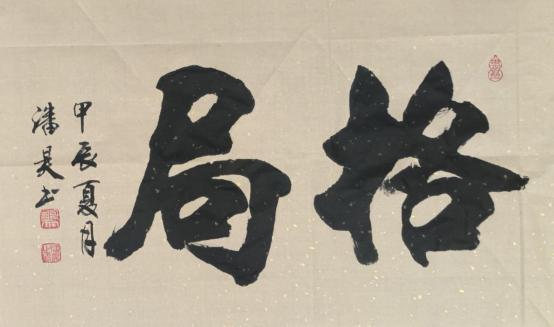 格局
甲辰夏月
潘昊书